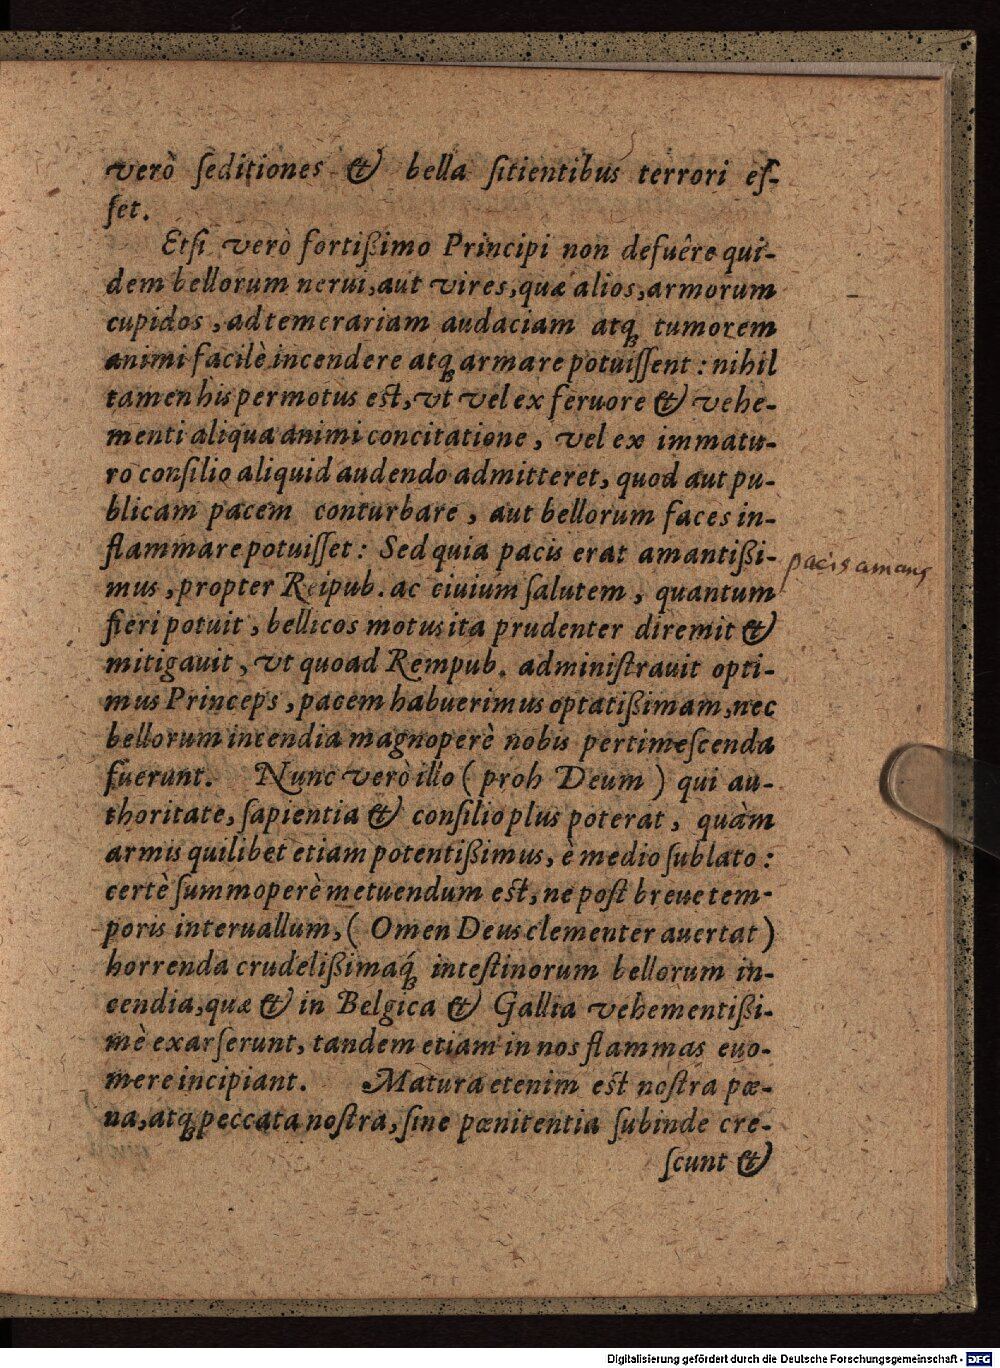 verò ſeditiones & bella ſitientibus terrori eſ-
ſet.
Etſi verò fortißimo Principi non defuêre qui-
dem bellorum nerui, aut vires, quæ alios, armorum
cupidos, ad temerariam audaciam atq; tumorem
animi facilè incendere atq; armare potuiſſent: nihil
tamen his permotus est, vt vel ex feruore & vehe-
menti aliqua animi concitatione, vel ex immatu-
ro conſilio aliquid audendo admitteret, quod aut pu-
blicam pacem conturbare, aut bellorum faces in-
flammare potuiſſet: Sed quia pacis erat amantißi-
mus, propter Reipub. ac ciuium ſalutem, quantum
fieri potuit, bellicos motus ita prudenter diremit &
mitigauit, vt quoad Rempub. adminiſtrauit opti-
mus Princeps, pacem habuerimus optatißimam, nec
bellorum incendia magnoperè nobis pertimeſcenda
fuerunt. Nunc verò illo (proh Deum) qui au-
thoritate, ſapientia & conſilio plus poterat, quàm
armis quilibet etiam potentißimus, è medio ſublato:
certè ſummoperè metuendum est, ne poſt breue tem-
poris interuallum, (Omen Deus clementer auertat)
horrenda crudelißimaq́; inteſtinorum bellorum in-
cendia, quæ & in Belgica & Gallia vehementißi-
mè exarſerunt, tandem etiam in nos flammas euo-
mere incipiant. Matura etenim est noſtra pœ-
na, atq; peccata noſtra, ſine pœnitentia ſubinde cre-
ſcunt &
pacis amans
Digitalisierung gefördert durch die Deutsche Forschungsgemeinschaft - DFG